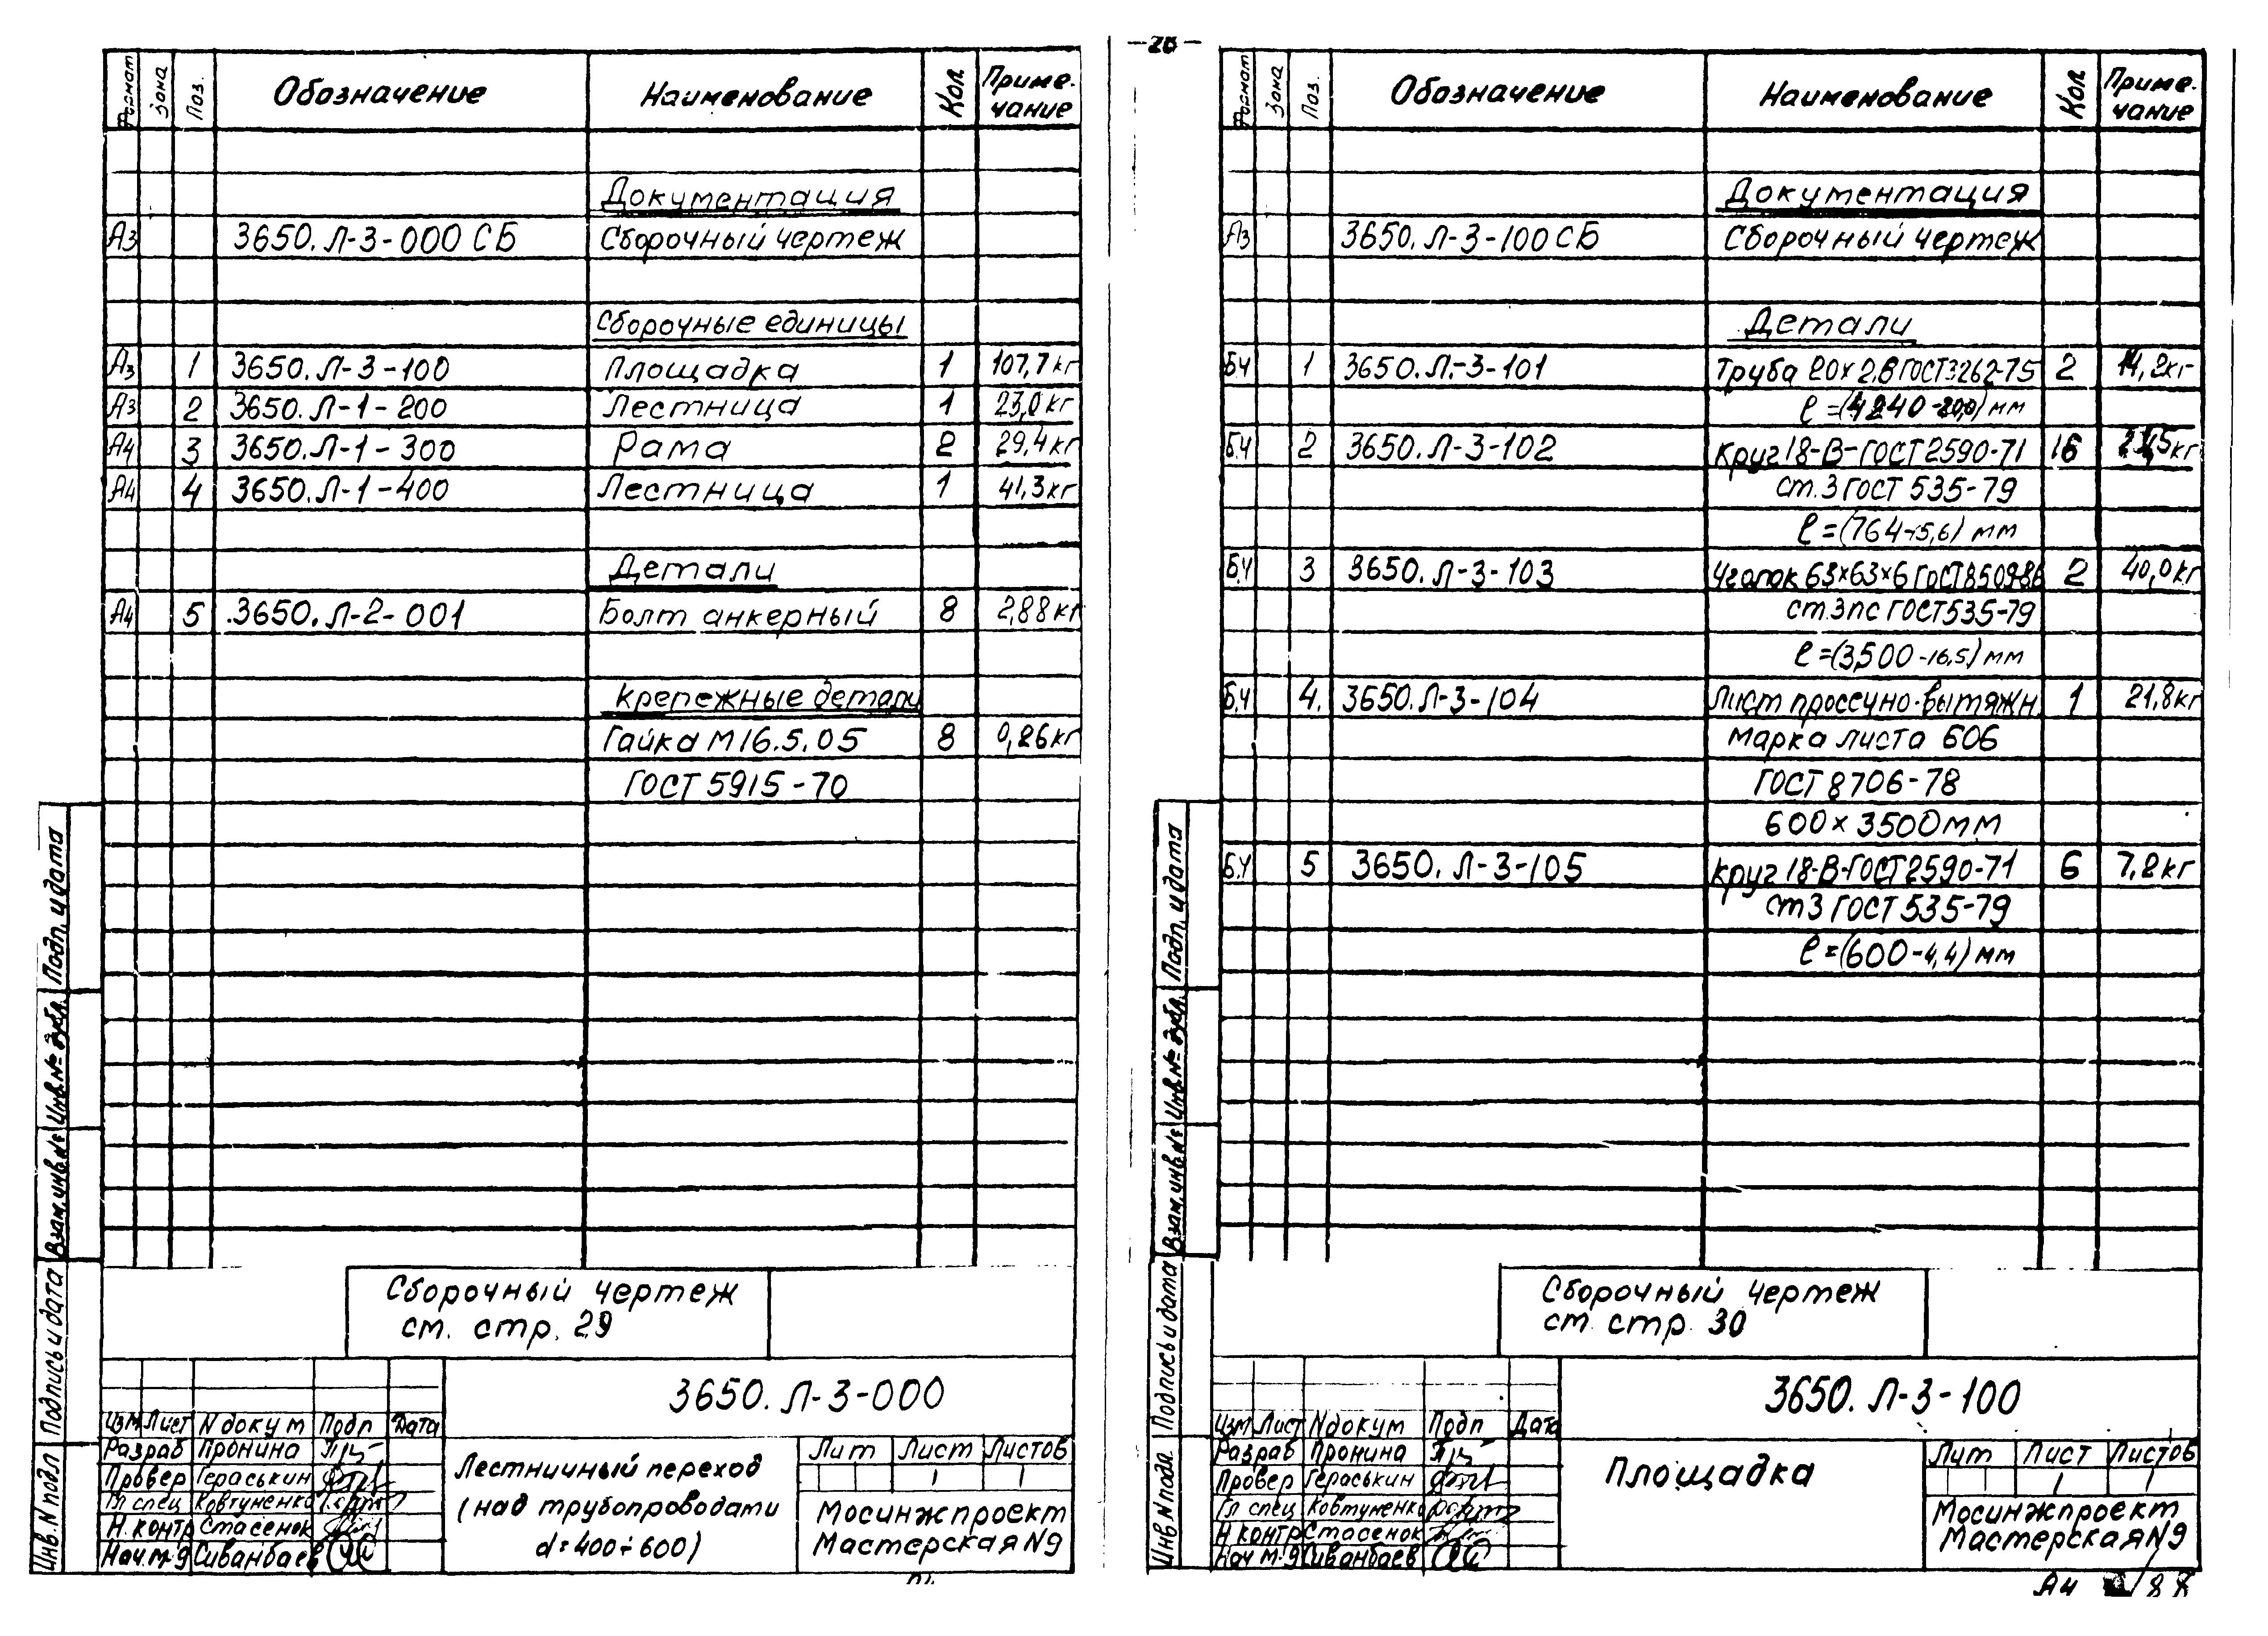 Формат Зона Поз. Обозначение Наименование Кол. Приме-чание
Документация
А3 3650.Л-3-000 СБ Сборочный чертеж
Сборочные единицы
А3 1 3650.Л-3-100 Площадка 1 107,7кг
А3 2 3650.Л-1-200 Лестница 1 23,0кг
А4 3 3650.Л-1-300 Рама 2 29,4кг
А4 4 3650.Л-1-400 Лестница 1 41,3кг
Детали
А4 5 3650.Л-2-001 Болт анкерный 8 2,88кг
Крепежные детали
Гайка М16.5.05 8 0,26кг
ГОСТ 5915-70
Подп. и дата
Инв.№ дубл.
Взам.инв.№
Подпись и дата
Инв.N подл
Сборочный чертеж
см. стр. 29
3650.Л-3-000
Изм Лист N докум Подп Дата
Разраб Пронина
Провер Гераськин
Гл спец Ковтуненко
Н.контр Стасенок
Нач.м-9 Сиванбаев
Лестничный переход
(над трубопроводами
d=400÷600)
Лит Лист Листов
1 1
Мосинжпроект
Мастерская N9
Формат Зона Поз. Обозначение Наименование Кол Приме-чание
Документация
А3 3650.Л-3-100 СБ Сборочный чертеж
Детали
БЧ 1 3650.Л-3-101 Труба 20×2,8 ГОСТ3262-75 2 14,2кг
ℓ=(4240-20,0) мм
Б.Ч 2 3650.Л-3-102 Круг 18-В-ГОСТ 2590-71 16
ст.3 ГОСТ 535-79
ℓ=(764-5,6) мм
Б.Ч 3 3650.Л-3-103 Уголок 63×63×6 ГОСТ8509-86 2 40,0кг
ст.3пс ГОСТ535-79
ℓ=(3500-16,5) мм
Б.Ч 4. 3650.Л-3-104 Лист просечно-вытяжн. 1 21,8кг
марка листа 606
ГОСТ 8706-78
600×3500мм
Б.Ч 5 3650.Л-3-105 круг 18-В-ГОСТ2590-71 6 7,2кг
ст3 ГОСТ 535-79
ℓ=(600-4,4) мм
Подп. и дата
Инв.№ дубл.
Взам.инв.№
Подпись и дата
Инв N подл.
Сборочный чертеж
см. стр. 30
3650.Л-3-100
Изм Лист N докум Подп Дата
Разраб Пронина
Провер Гераськин
Гл спец Ковтуненко
Н контр Стасенок
Нач м-9 Сиванбаев
Площадка
Лит Лист Листов
1 1
Мосинжпроект
Мастерская N9
А4